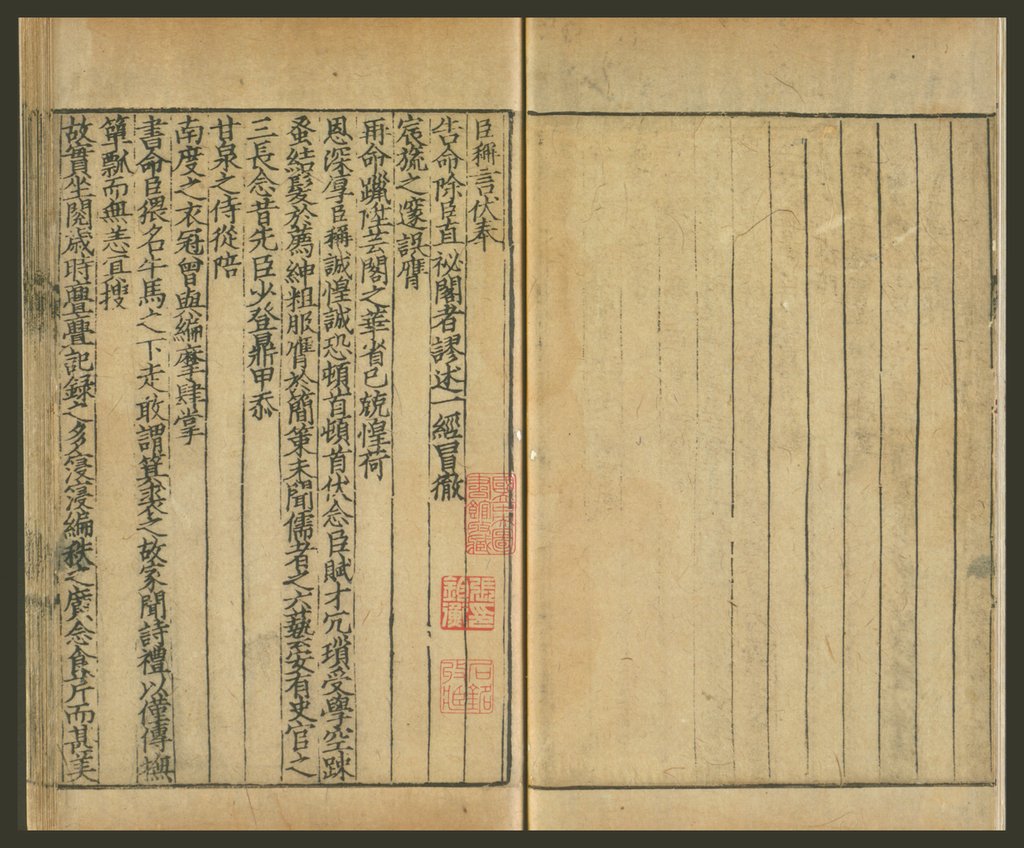 臣稱言伏奉
告命除臣直祕閣者謬述一經冒徹
宸旒之邃誤膺
再命躐陞芸閣之華省己兢惶荷
恩深厚臣稱誠惶誠恐頓首頓首伏念臣賦才冗瑣受學空踈
蚤結髮於薦紳粗服膺於簡策未聞儒者之六藝妄有史官之
三長念昔先臣少登鼎甲忝
甘泉之侍從陪
南度之衣冠曾與編摩肆掌
書命臣猥名牛馬之下走敢謂箕裘之故家聞詩禮以僅傳撫
簞瓢而無恙宜搜
故實坐閱歲時亹亹記録之多寖寖編秩之廣念食芹而甚美